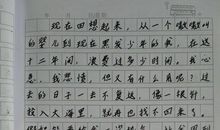 现在回想起来，从一个嗷嗷叫
的婴儿到现在黑发少年的我，在这
十二年间，浪费过多少时间，我心
息，我悲情，但又有什么用呢？过
去的日子一去不复返，像一根针，
掉入大海里，就再也找不回来了，